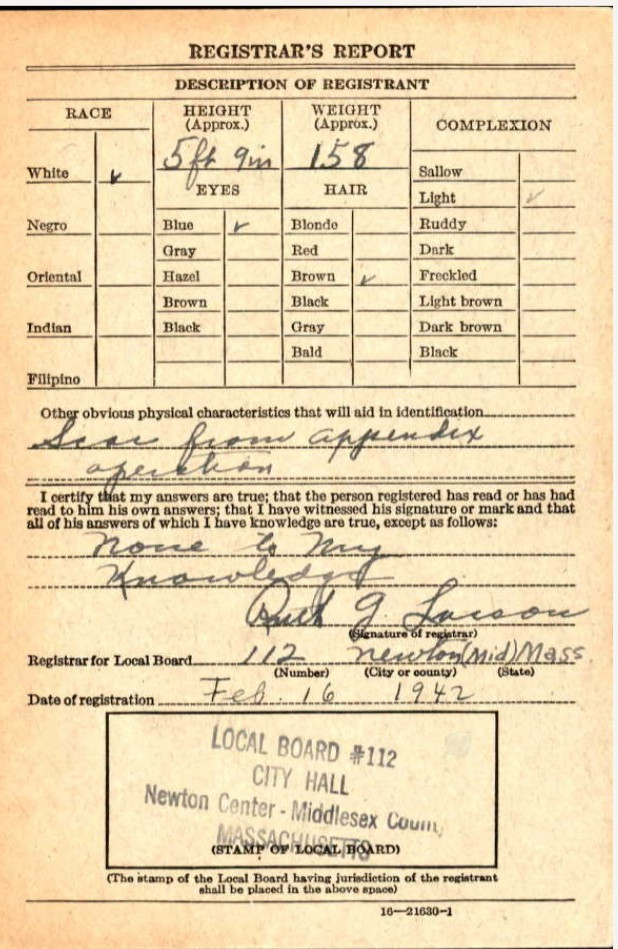 REGISTRAR'S REPORT
DESCRIPTION OF REGISTRANT
RACE
HEIGHT
(Approx.)
WEIGHT
(Approx.)
COMPLEXION
5 ft 9 in
158
White ✓
EYES
HAIR
Sallow
Light ✓
Negro
Blue ✓
Blonde
Ruddy
Gray
Red
Dark
Oriental
Hazel
Brown ✓
Freckled
Brown
Black
Light brown
Indian
Black
Gray
Dark brown
Bald
Black
Filipino
Other obvious physical characteristics that will aid in identification
Scar from appendix
operation
I certify that my answers are true; that the person registered has read or has had
read to him his own answers; that I have witnessed his signature or mark and that
all of his answers of which I have knowledge are true, except as follows:
None to My
Knowledge
Ruth G. Larson
(Signature of registrar)
Registrar for Local Board 112 Newton (Mid) Mass
(Number) (City or county) (State)
Date of registration Feb. 16 1942
LOCAL BOARD #112
CITY HALL
Newton Center - Middlesex County
MASSACHUSETTS
(STAMP OF LOCAL BOARD)
(The stamp of the Local Board having jurisdiction of the registrant
shall be placed in the above space)
16—21630-1